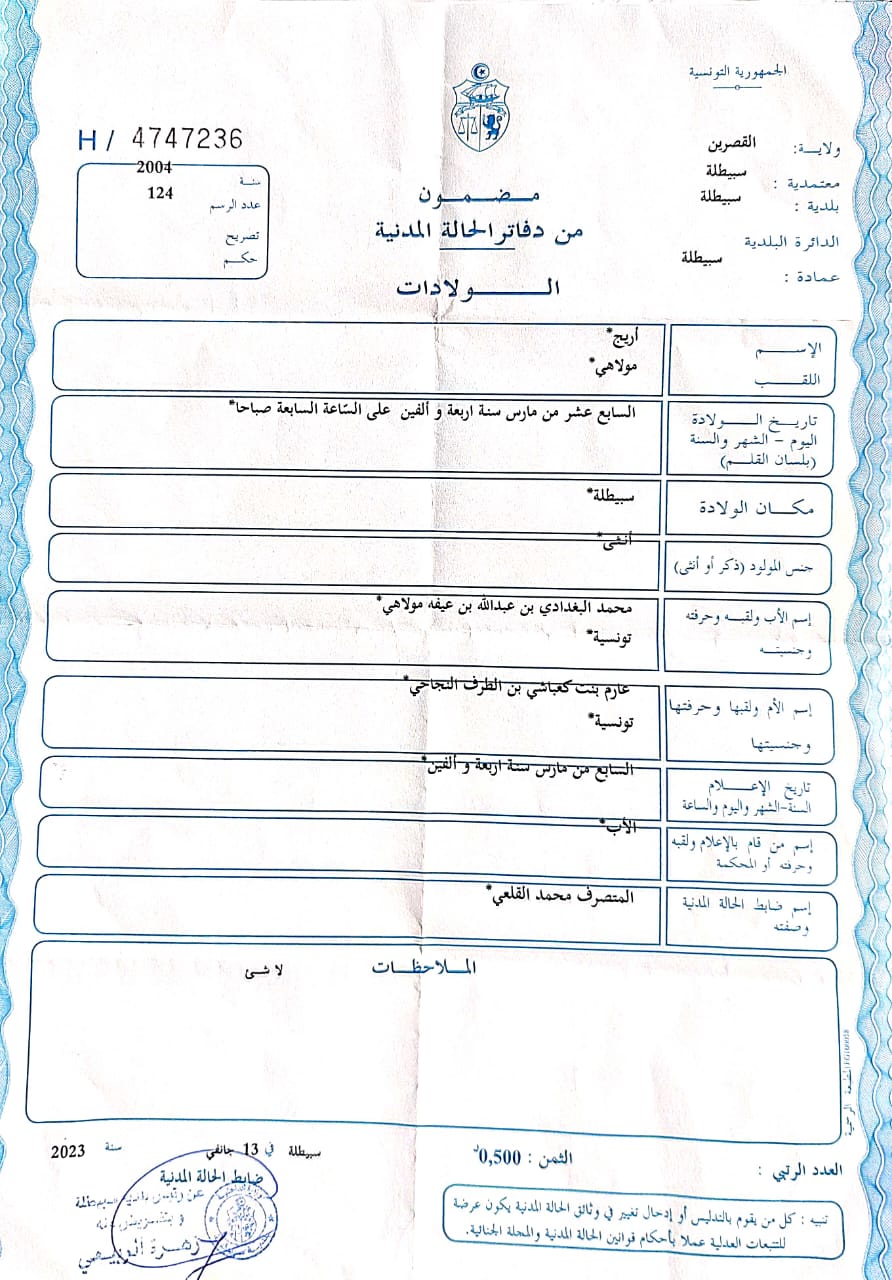 الجمهورية التونسية
H / 4747236
ولاية: القصرين
معتمدية : سبيطلة
بلدية : سبيطلة
الدائرة البلدية
عمادة : سبيطلة
سنة 2004
عدد الرسم 124
تصريح
حكم
مضمون
من دفاتر الحالة المدنية
الولادات
الإسم أريج*
اللقب مولاهي*
تاريخ الولادة السابع عشر من مارس سنة اربعة و ألفين على الساعة السابعة صباحا*
اليوم - الشهر والسنة
(بلسان القلم)
مكان الولادة سبيطلة*
جنس المولود (ذكر أو أنثى) أنثى*
إسم الأب ولقبه وحرفته محمد البغدادي بن عبدالله بن عيفه مولاهي*
وجنسيته تونسية*
إسم الأم ولقبها وحرفتها عارم بنت كعباشي بن الطرف النجاحي*
وجنسيتها تونسية*
تاريخ الإعلام السابع من مارس سنة اربعة و ألفين*
السنة-الشهر واليوم والساعة
إسم من قام بالإعلام ولقبه الأب*
وحرفته أو المحكمة
إسم ضابط الحالة المدنية المتصرف محمد القلعي*
وصفته
الملاحظات لا شئ
المطبعة الرسمية
سبيطلة في 13 جانفي سنة 2023
ضابط الحالة المدنية
الثمن : 0,500د
العدد الرتبي :
تنبيه : كل من يقوم بالتدليس أو إدخال تغيير في وثائق الحالة المدنية يكون عرضة
للتتبعات العدلية عملا بأحكام قوانين الحالة المدنية والمجلة الجنائية.